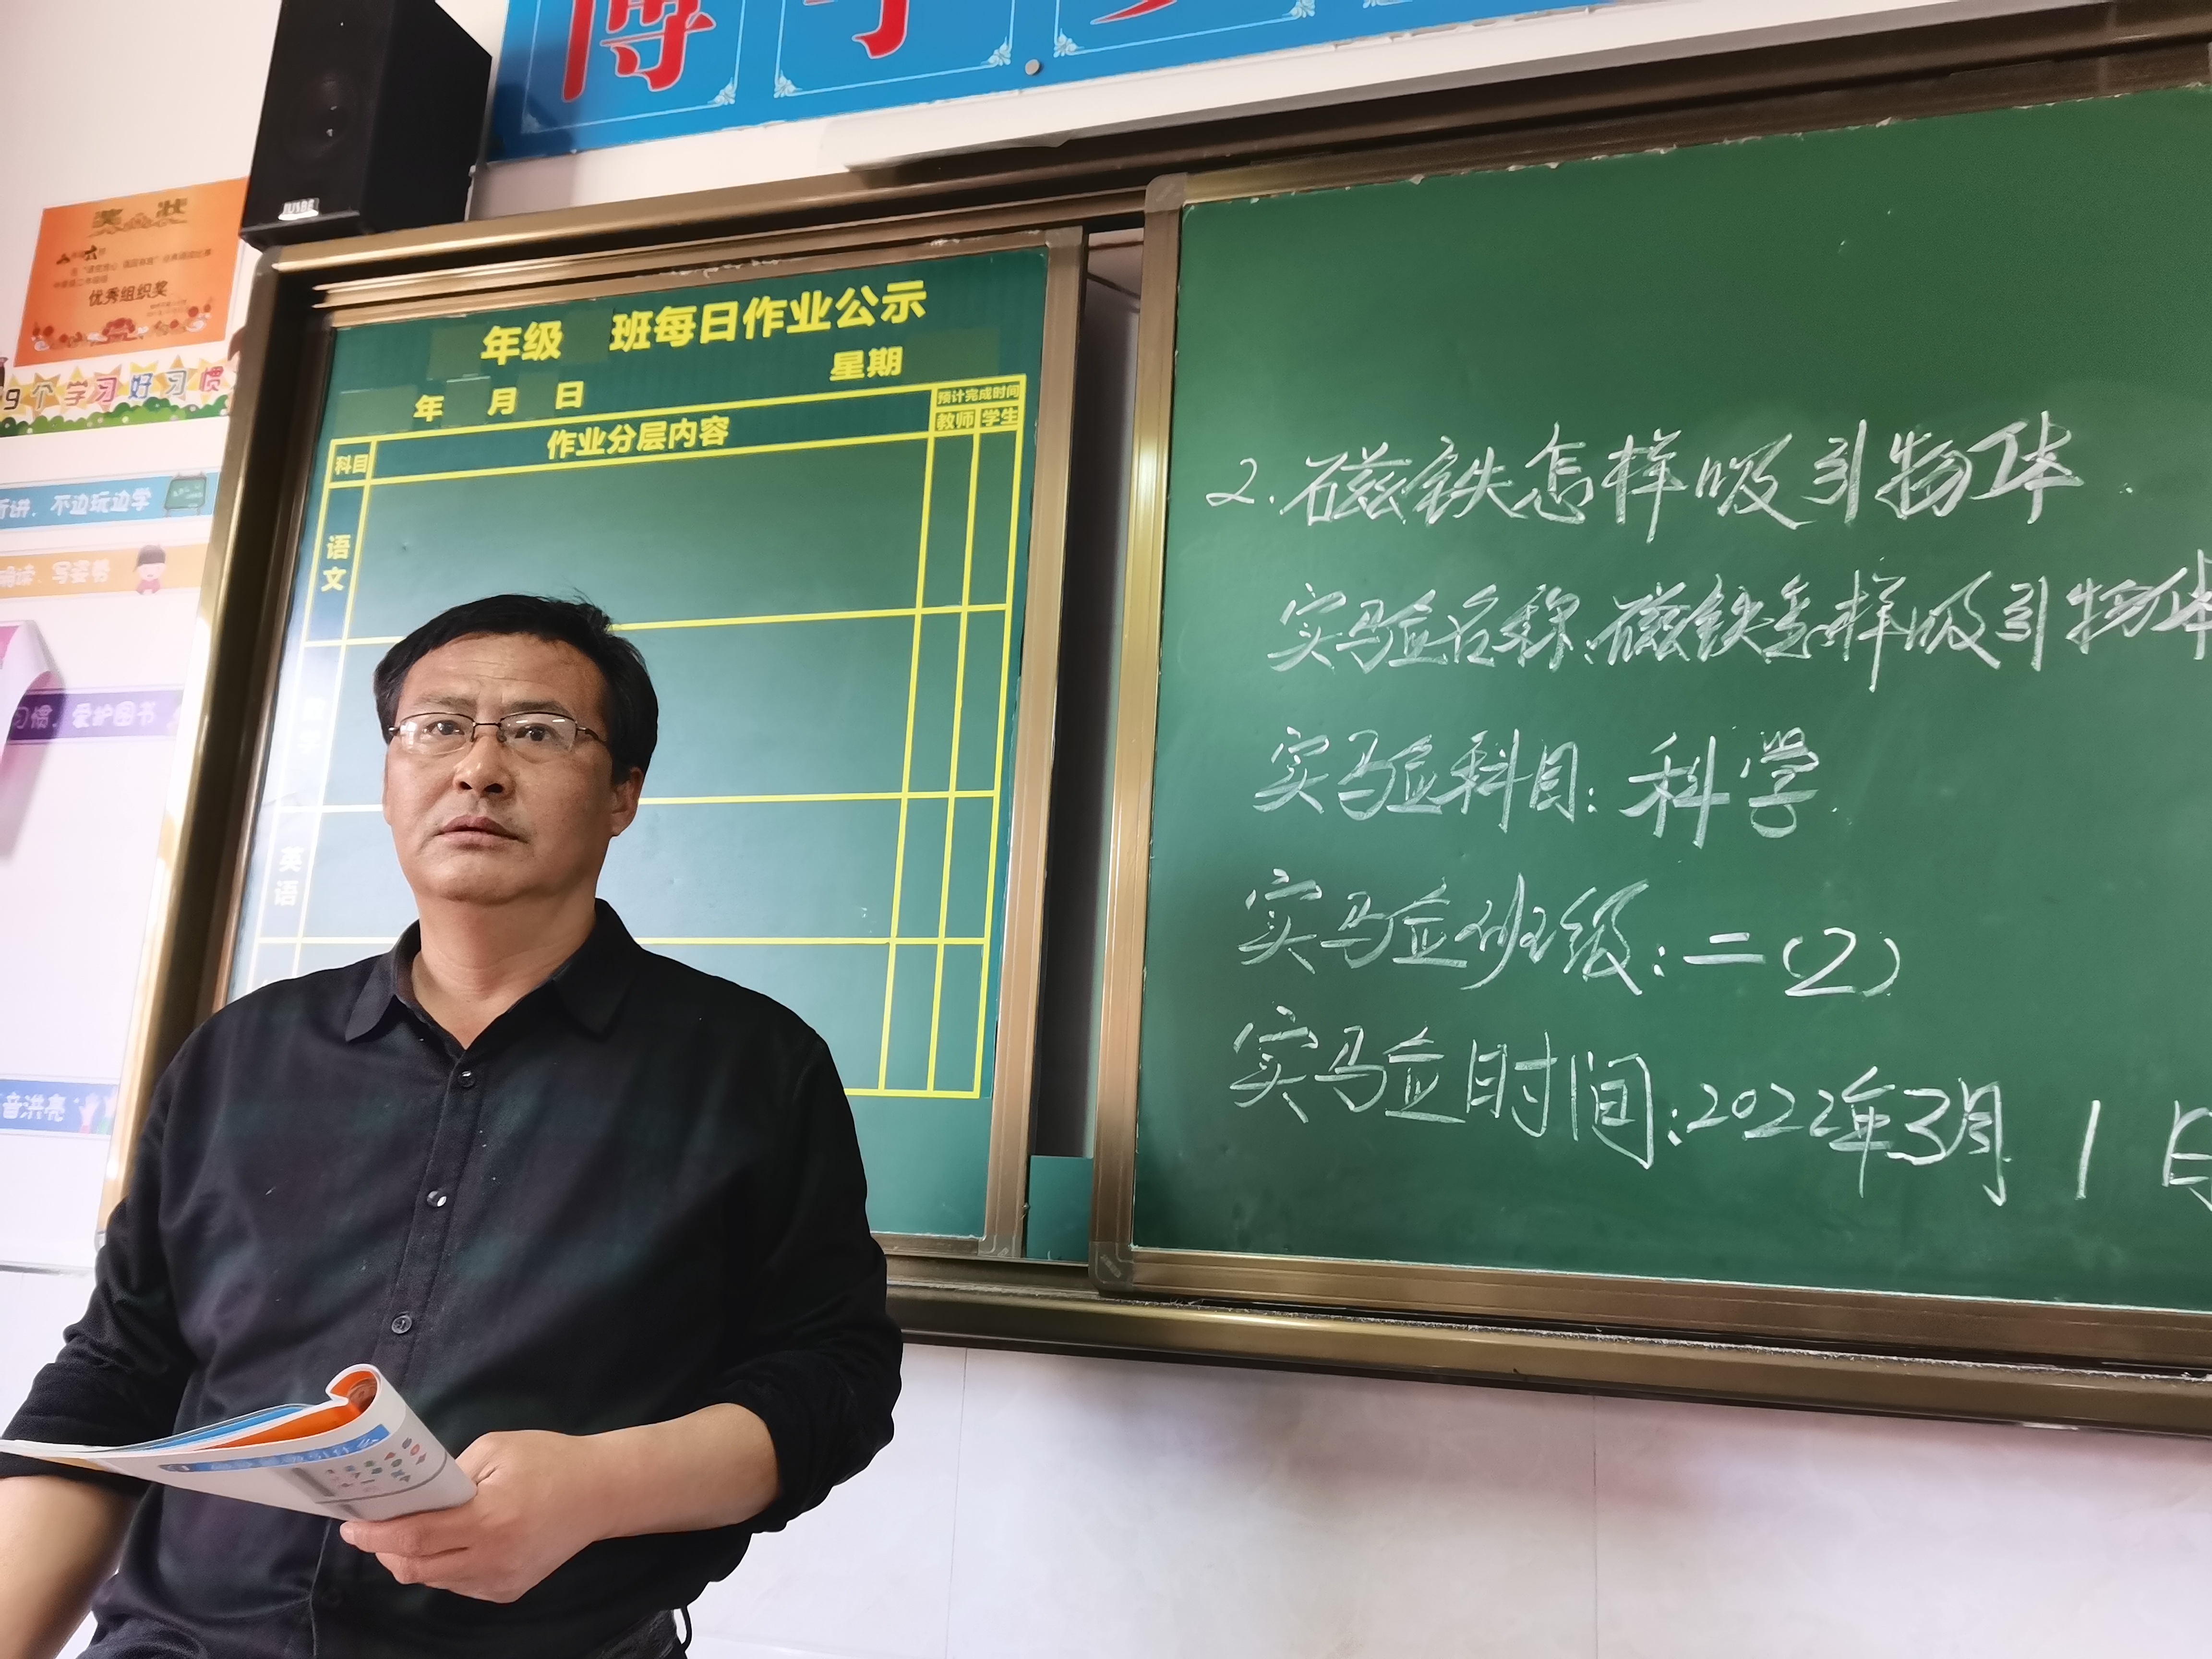 博
奖状
优秀组织奖
9个学习好习惯
听讲，不边玩边学
诵读，写姿势
习惯，爱护图书
音洪亮
年级 班每日作业公示
年 月 日 星期
科目 作业分层内容 预计完成时间
教师 学生
语文
英语
2.磁铁怎样吸引物体
实验名称:磁铁怎样吸引物体
实验科目:科学
实验班级:二(2)
实验时间:2022年3月1日